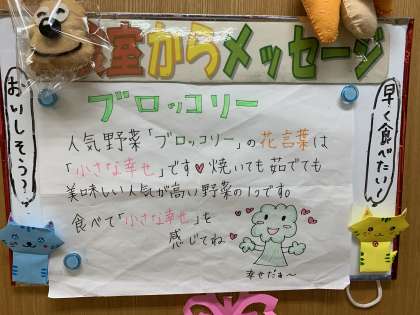 室からメッセージ
おいしそう?
早く食べたい!
ブロッコリー
人気野菜「ブロッコリー」の花言葉は
「小さな幸せ」です♥焼いても茹でても
美味しい人気が高い野菜の1つです。
食べて「小さな幸せ」を
感じてね
幸せだね〜